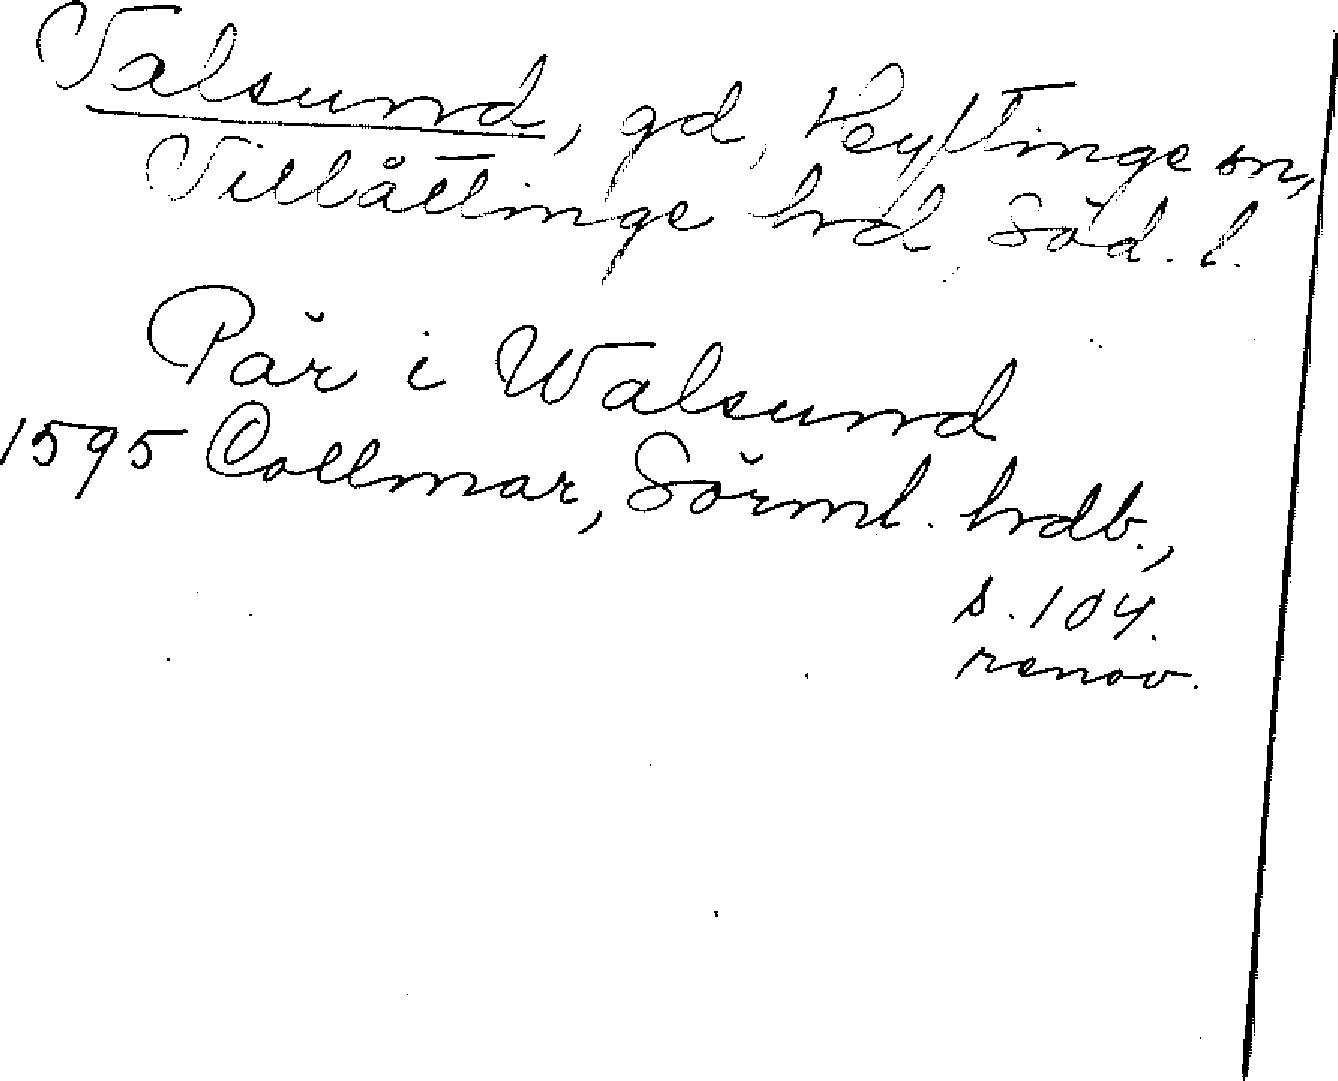 Valsund, gd, Hyltinge sn,
Villåttinge hrd, Söd. l.
Pär i Walsund
1595 Collmar, Sörml. hrdb.,
s. 104.
renov.